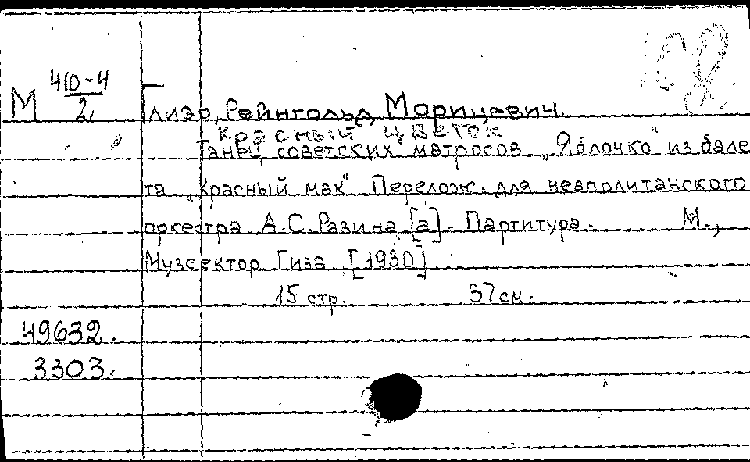 М 410-4
2
Глиэр, Рейнгольд Морицевич.
Красный цветок
Танец советских матросов „Яблочко" из бале
та „Красный мак". Перелож. для неаполитанского
оркестра А.С. Разина [а]. Партитура. М.,
Музсектор Гиза [1930]
15 стр. 37 см.
49632.
3303.